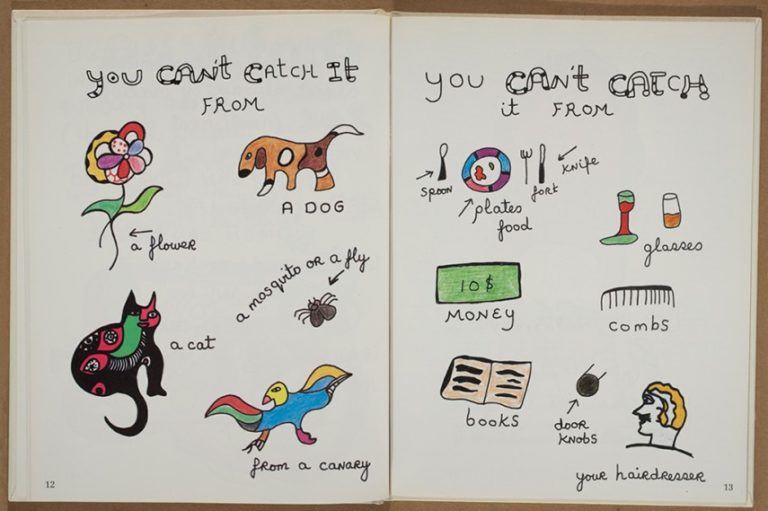 you CAN't CATCH It
FROM
a flower
A DOG
a mosquito OR a fly
a cat
from a canary
12
you CAN't CATCH
it FROM
spoon
plates
food
fork
knife
glasses
10 $
MONEY
combs
books
dOOR
KNObS
your hairdresser
13